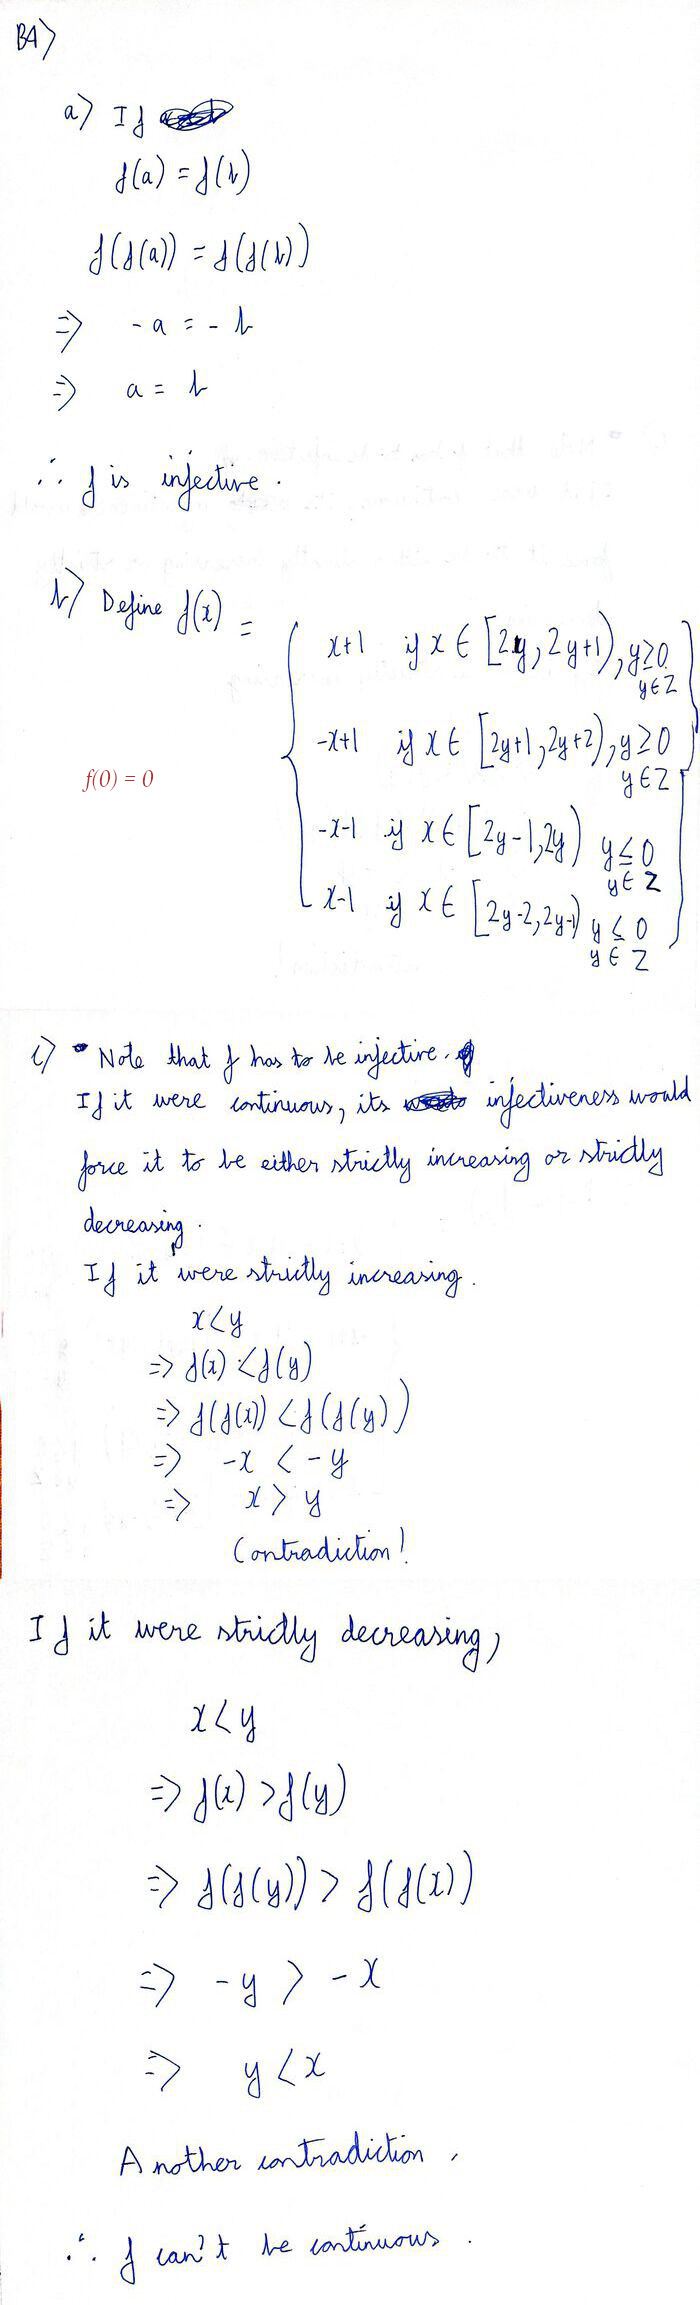 B4)
a) If
f(a) = f(b)
f(f(a)) = f(f(b))
⇒ -a = -b
⇒ a = b
∴ f is injective.
b) Define f(x) =
x+1 if x ∈ [2y, 2y+1), y≥0
y∈Z
-x+1 if x ∈ [2y+1, 2y+2), y≥0
y∈Z
f(0) = 0
-x-1 if x ∈ [2y-1, 2y) y≤0
y∈Z
x-1 if x ∈ [2y-2, 2y-1) y≤0
y∈Z
c) Note that f has to be injective.
If it were continuous, its injectiveness would
force it to be either strictly increasing or strictly
decreasing.
If it were strictly increasing.
x<y
⇒ f(x) < f(y)
⇒ f(f(x)) < f(f(y))
⇒ -x < -y
⇒ x > y
Contradiction!
If it were strictly decreasing,
x<y
⇒ f(x) > f(y)
⇒ f(f(y)) > f(f(x))
⇒ -y > -x
⇒ y < x
Another contradiction.
∴ f can't be continuous.